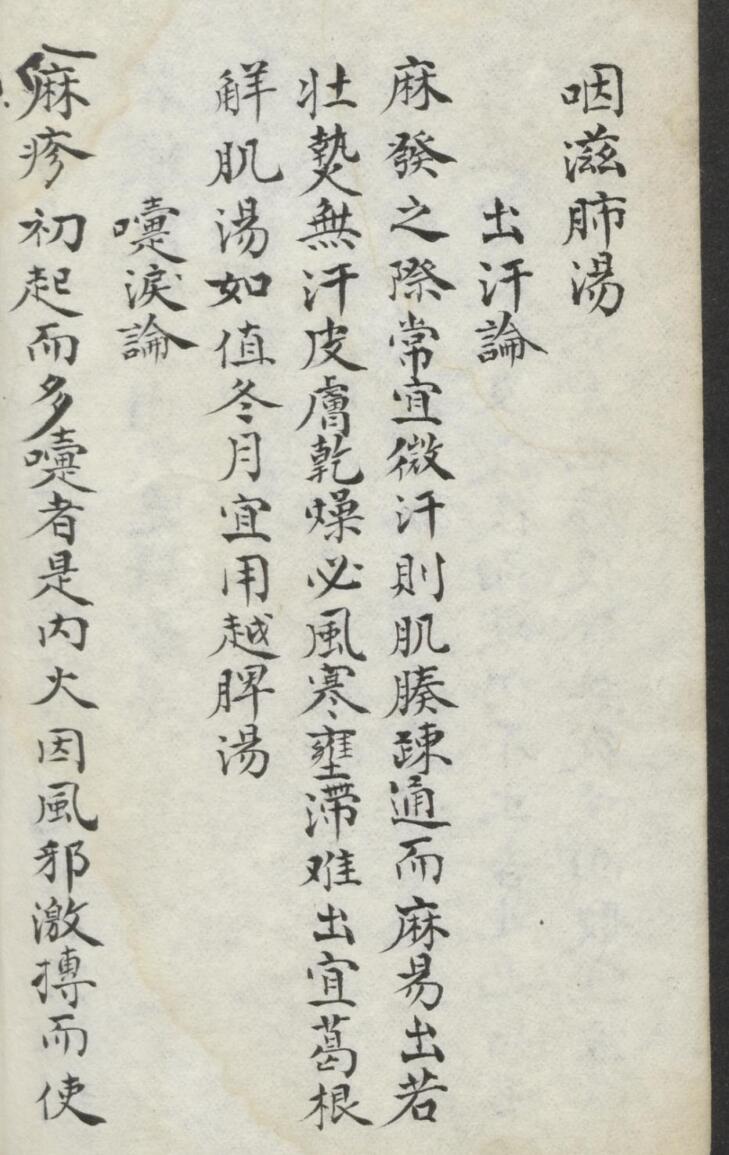 咽滋肺湯
出汗論
麻發之際常宜微汗則肌腠疎通而麻易出若
壮𤍠無汗皮膚乾燥必風寒壅滯难出宜葛根
觧肌湯如值冬月宜用越脾湯
嚏淚論
麻疹初起而多嚏者是内火因風邪激搏而使